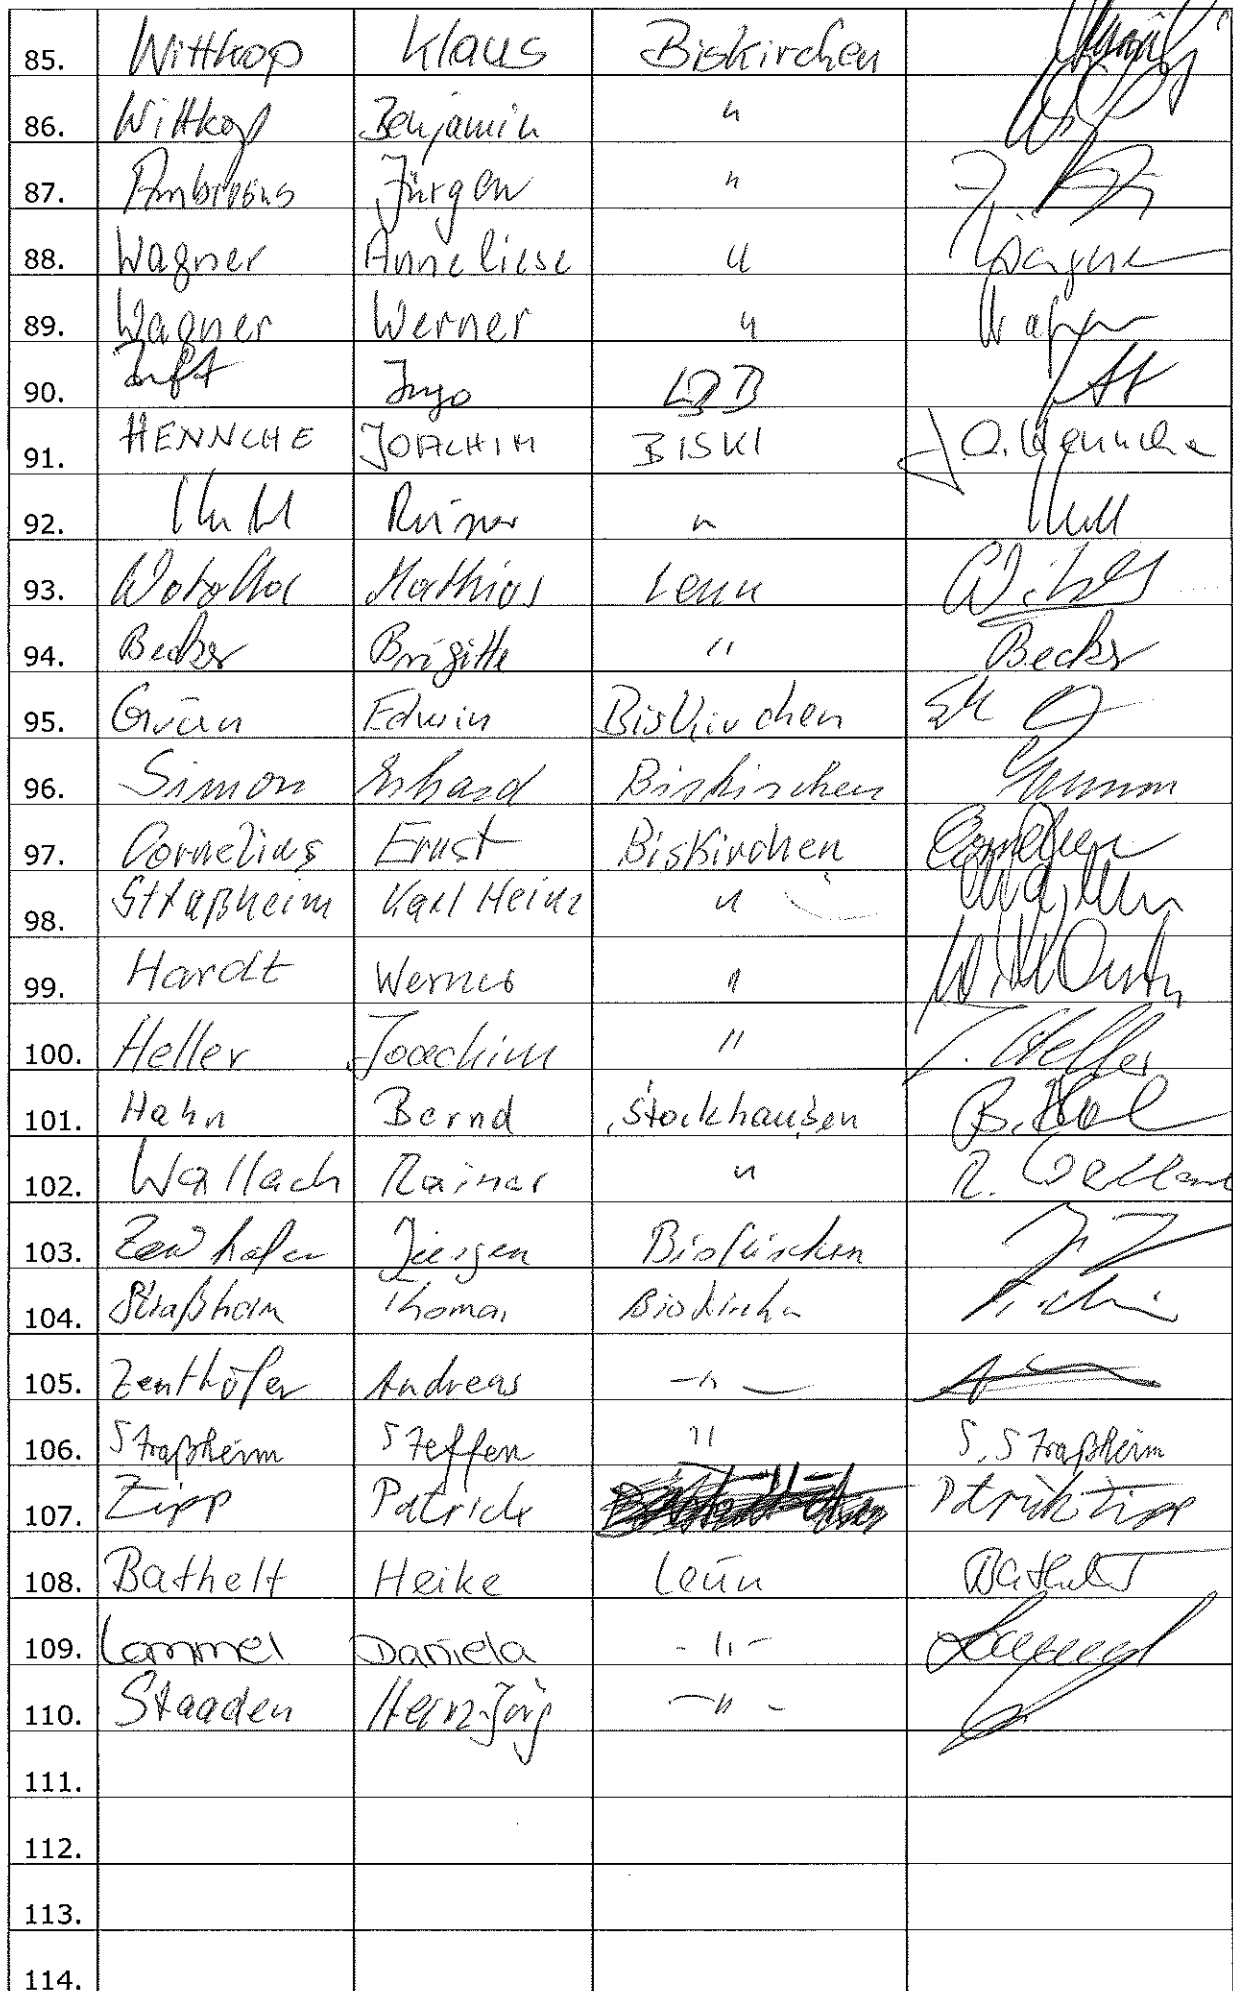 85. Wittkop Klaus Biskirchen
86. Wittkop Benjamin "
87. Ambrosius Jürgen "
88. Wagner Anneliese " Wagner
89. Wagner Werner " Wagner
90. Ingo
91. HENNCHE JOACHIM BISKI J.O. Hennche
92. "
93. Mathias Leun
94. Becker Brigitte " Becker
95. Grün Edwin Biskirchen
96. Simon Erhard Biskirchen
97. Cornelius Ernst Biskirchen
98. Straßheim Karl Heinz "
99. Hardt Werner "
100. Heller Joachim " J. Heller
101. Hahn Bernd Stockhausen
102. Wallach Rainer "
103. Jürgen Biskirchen
104. Straßheim Thomas Biskirchen
105. Zenthöfer Andreas -"-
106. Straßheim Steffen " S. Straßheim
107. Zipp Patrick Patrick Zipp
108. Bathelt Heike Leun Bathelt
109. Lammel Daniela -"-
110. Staaden Heinz-Jörg -"-
111.
112.
113.
114.